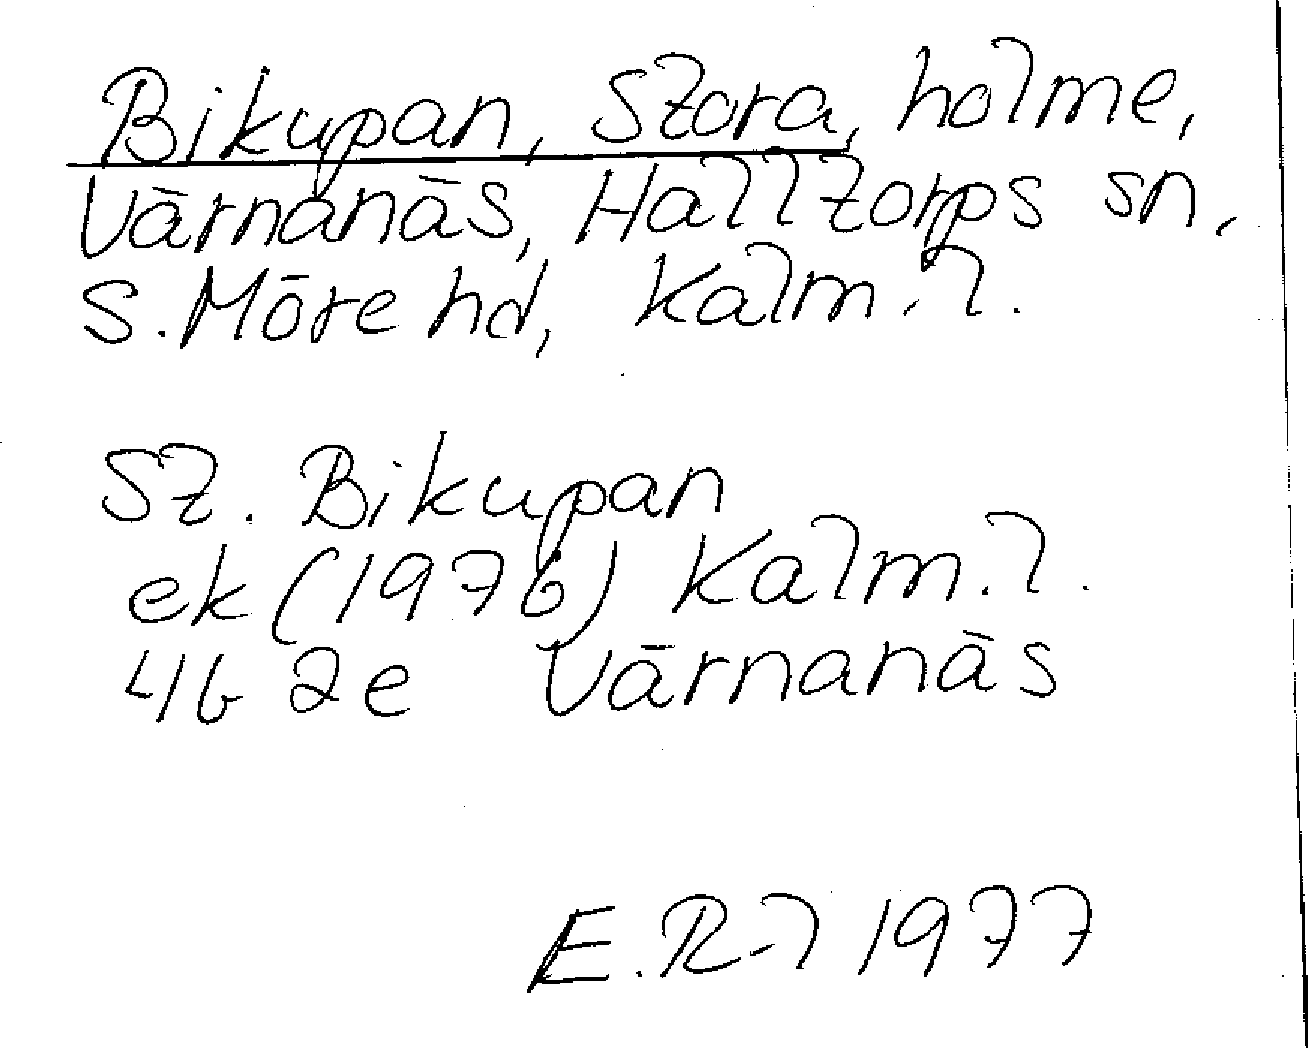 Bikupan, Stora, holme,
Värnanäs, Halltorps sn,
S. Möre hd, Kalm. l.
St. Bikupan
ek (1976) Kalm. l.
4G 2e Värnanäs
E.R-l 1977